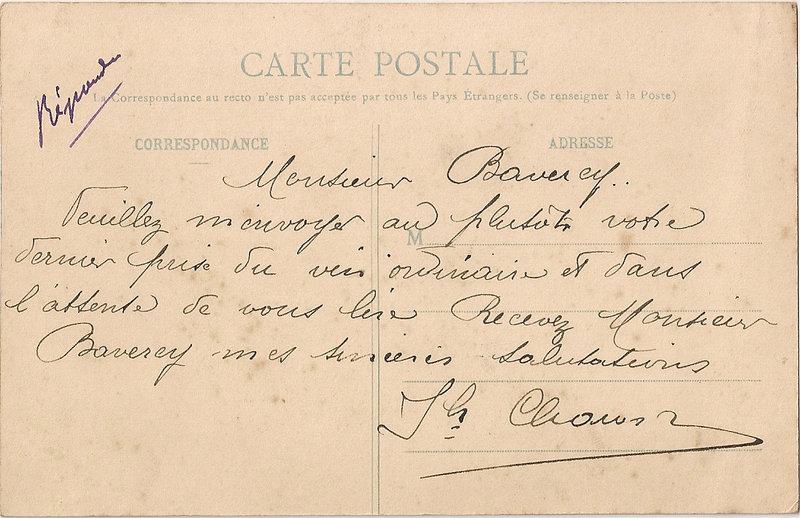 CARTE POSTALE
Répondu
La Correspondance au recto n'est pas acceptée par tous les Pays Étrangers. (Se renseigner à la Poste)
CORRESPONDANCE
ADRESSE
Monsieur Baverey..
Veuillez m'envoyer au plutôt votre
M
dernier prise du vin ordinaire et dans
l'attente de vous lire Recevez Monsieur
Baverey mes sincères salutations